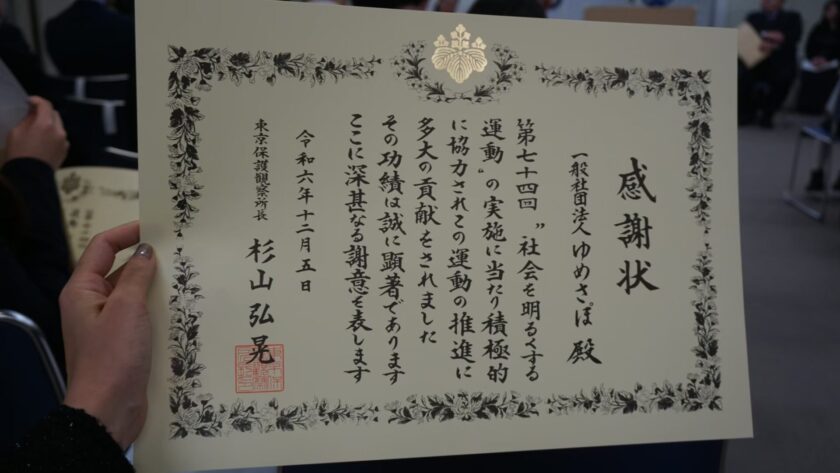 感謝状
一般社団法人ゆめさぽ 殿
第七十四回〝社会を明るくする
運動〟の実施に当たり積極的
に協力されこの運動の推進に
多大の貢献をされました
その功績は誠に顕著であります
ここに深甚なる謝意を表します
令和六年十二月五日
東京保護観察所長 杉山弘晃